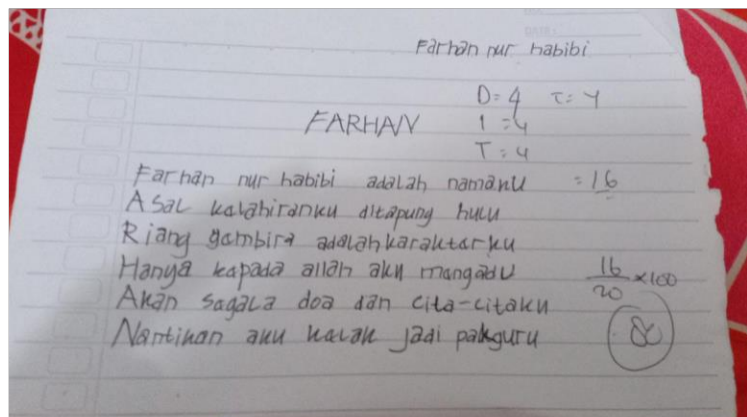 Farhan nur habibi
D=4 T=4
FARHAN I=4
T=4
Farhan nur habibi adalah namaku =16
Asal kalahiranku ditapung hulu
Riang gambira adalah karakterku
Hanya kapada allah aku mangadu 16/20 x100
Akan sagala doa dan cita-citaku
Nantikan aku kalak jadi pakguru 80